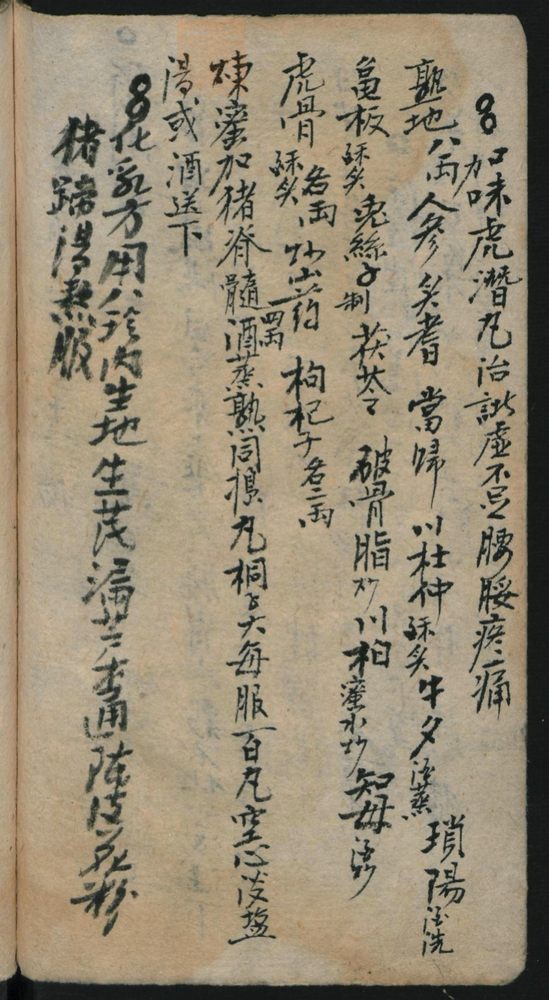 加味虎潛丸治諸虛不足腰腿疼痛
熟地八両 人參 炙耆 當歸 川杜仲酥炙 牛夕酒蒸 瑣陽酒洗
龜板酥炙 兎絲子制 茯苓 破骨脂炒 川柏蜜水炒 知母酒炒
虎骨酥炙各両 炒山药 枸杞子各二両
煉蜜加猪脊髓四両酒蒸熟同搗丸桐子大每服百丸空心淡盐
湯或酒送下
化乳方用八珍內生地 生芪 漏芦 木通 陈皮 花粉
猪蹄湯熬服